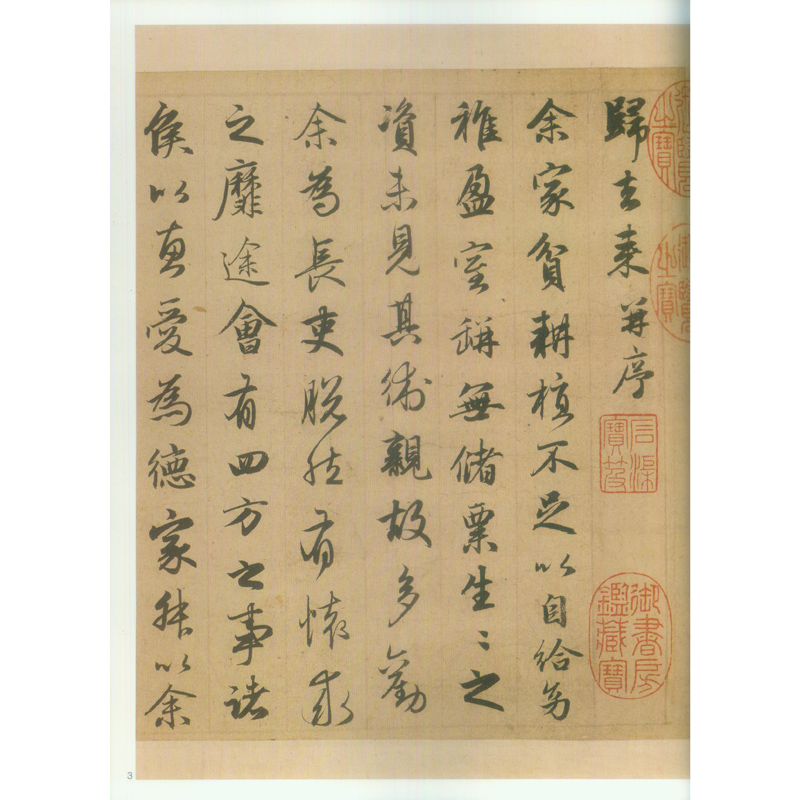 歸去来并序
余家貧耕植不足以自給幼
稚盈室缾無儲粟生〻之
資未見其術親故多勸
余為長吏脫然有懷求
之靡途會有四方之事諸
侯以惠愛為德家叔以余
石渠寶笈
御書房鑑藏寶
3